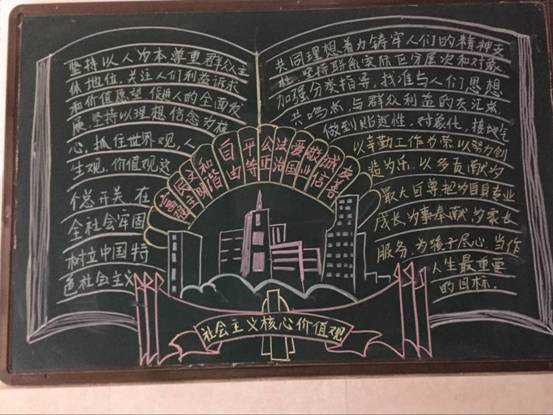 坚持以人为本尊重群众主
体地位，关注人们利益诉求
和价值愿望 促进人的全面发
展，坚持以理想 信念为核
心，抓住世界观，人
生观，价值观这
个总开关，在
全社会牢固
树立中国特
色社会主义
共同理想着力铸牢人们的精神支
柱，坚持联系实际区分层次和对象
加强分类指导，找准与人们思想
共鸣点，与群众利益的交汇点
做到贴近性，对象化，接地气
以辛勤工作为荣以努力创
造为乐，以多贡献为
最大自尊把为自己专业
成长为事奉献为家长
服务，为孩子尽心 当作
人生最重要
的目标.
富强 民主 文明 和谐 自由 平等 公正 法治 爱国 敬业 诚信 友善
社会主义核心价值观